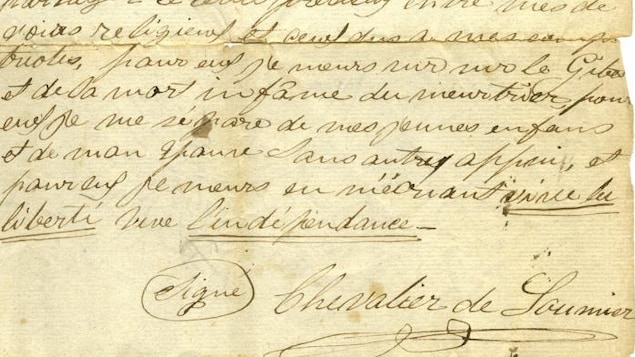 partag le cruel précieux entre mes de
voirs religieux et ceux dus a mes compa
triotes, pour eux je meurs sur le Gibet
et de la mort infame du meurtrier, pour
eux je me sépare de mes jeunes enfans
et de mon Epouse sans autre appui, et
pour eux je meurs en m'écriant vive la
liberté vive l'indépendance —
Signé Chevalier de Lorimier